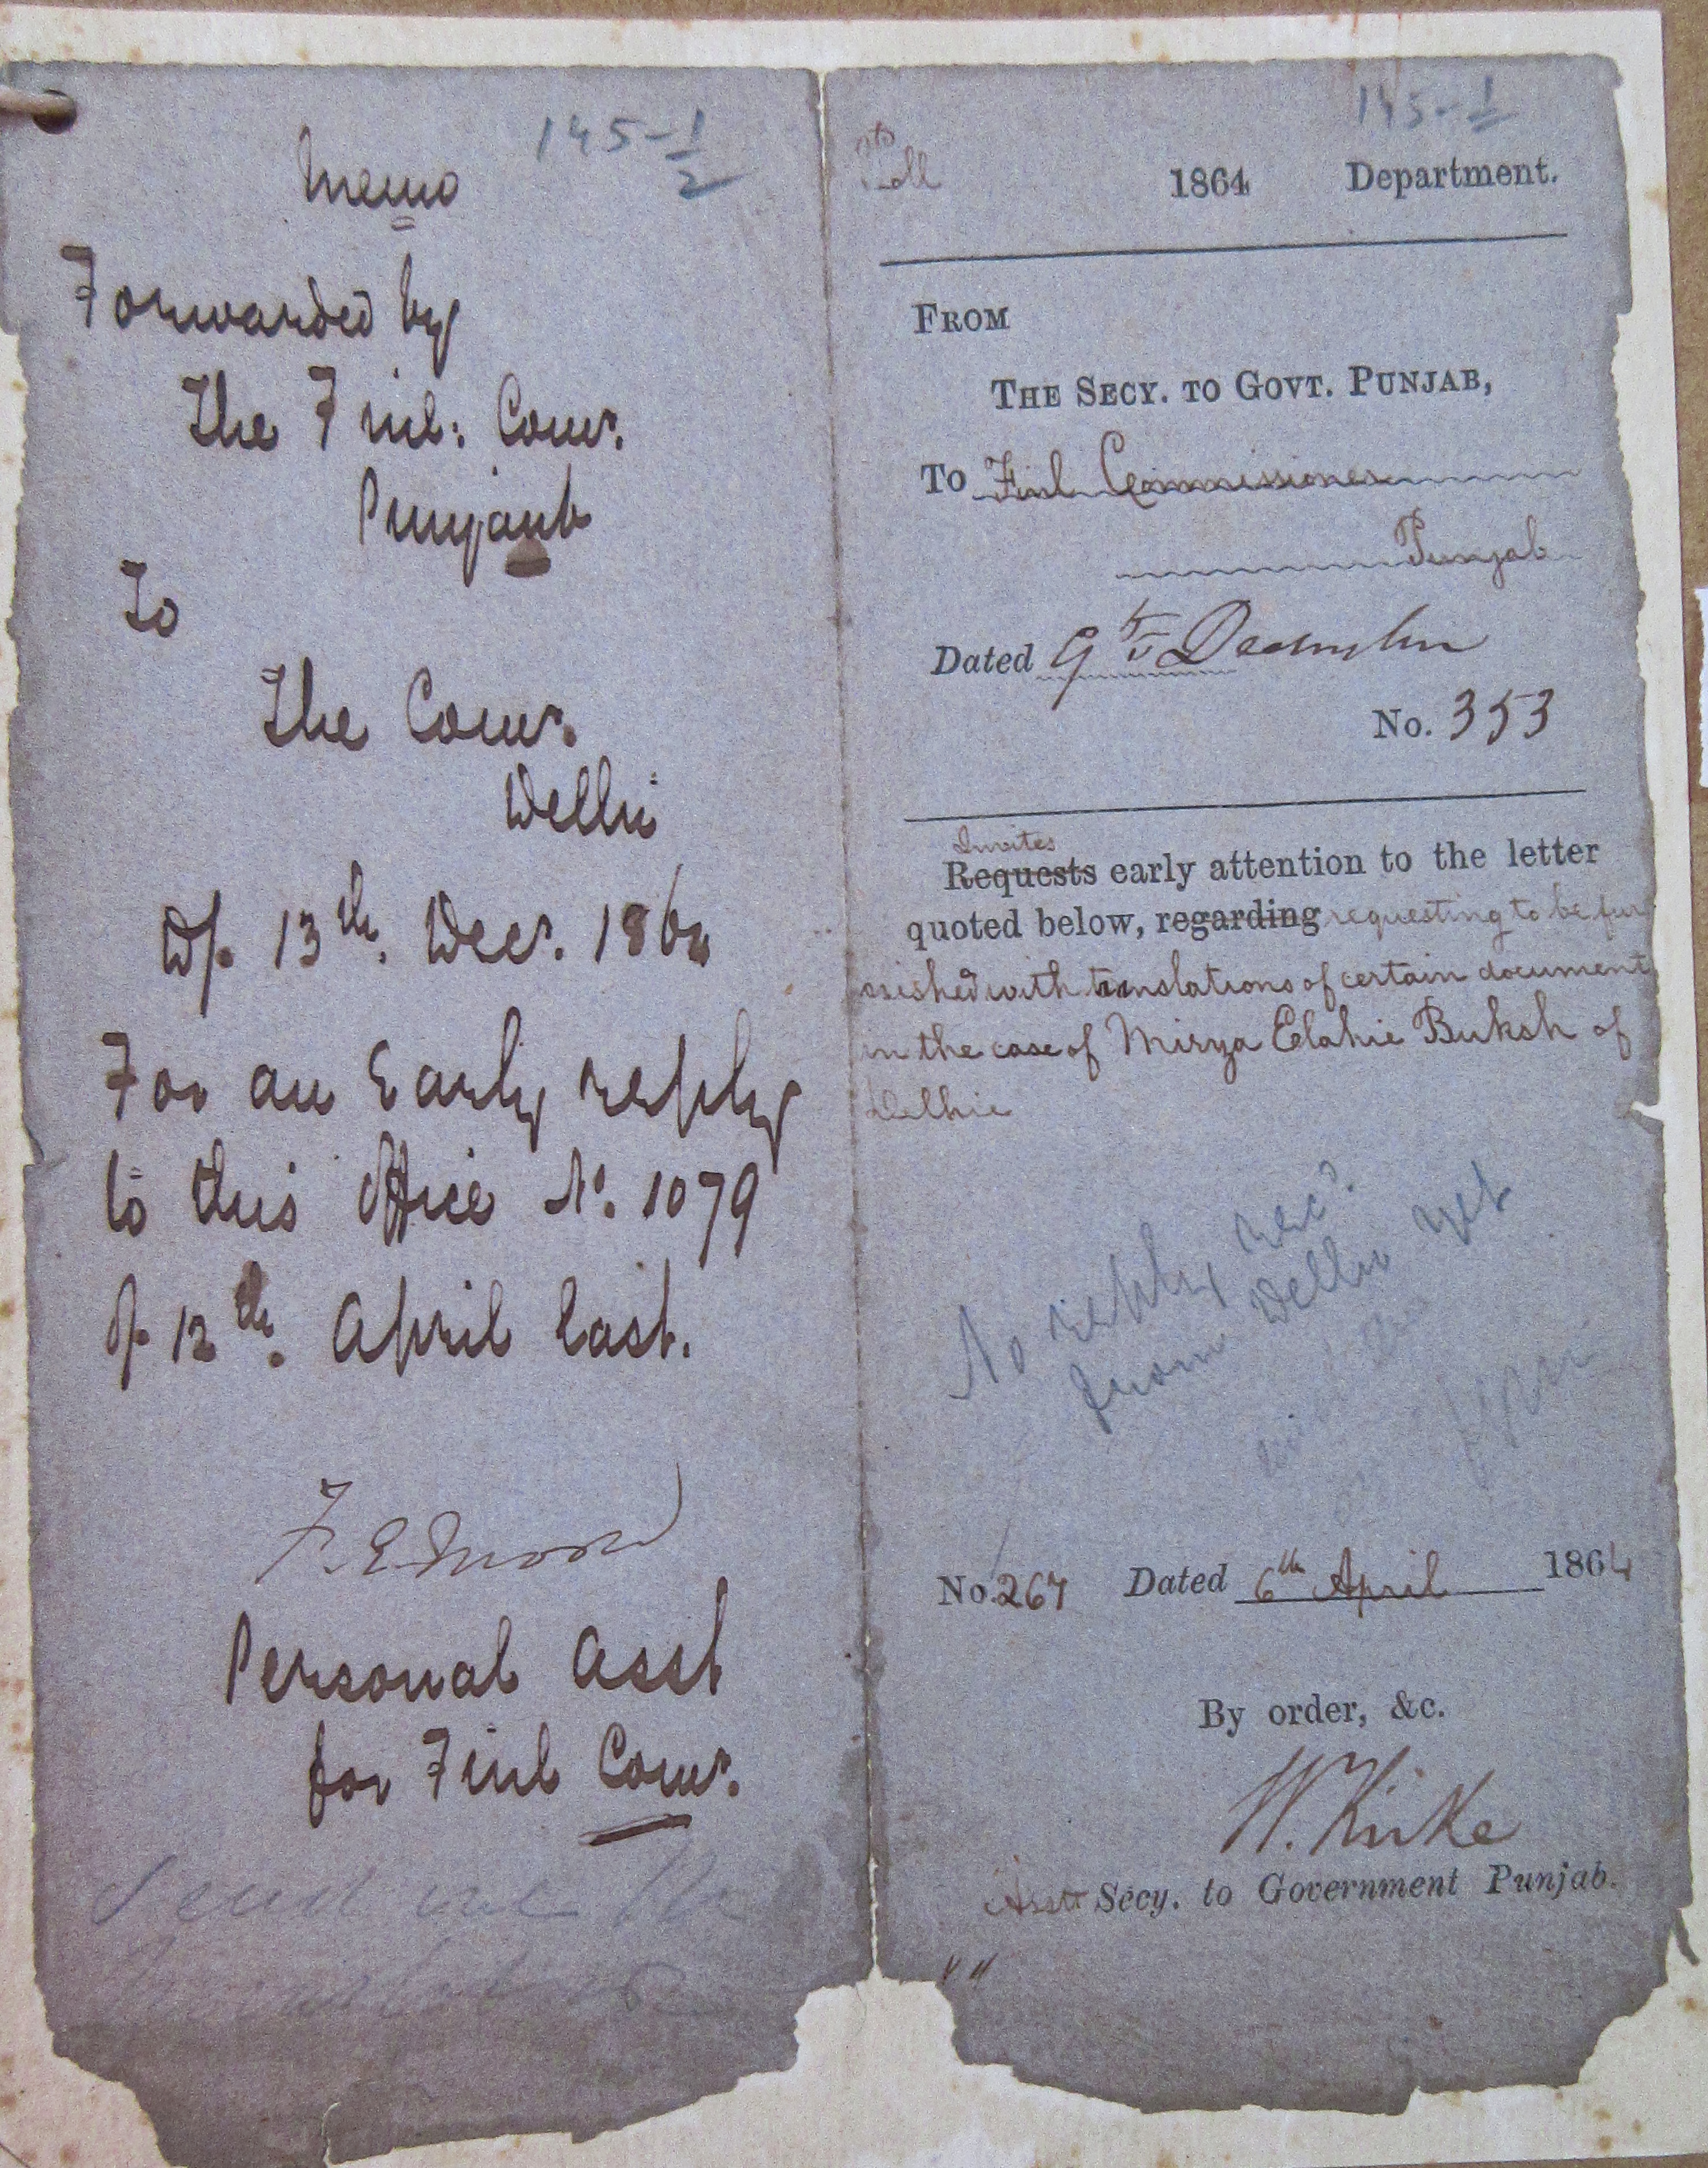 145-1/2
Memo
Forwarded by
The Finl: Comr.
Punjaub
To
The Comr.
Delhi
D/. 13th. Decr. 1864
For an Early reply
to this Office No. 1079
of 12th. April last.
F. E. Moore
Personal Asst
for Finl Comr.
Send me the
145-1/2
1864 Department.
FROM
THE SECY. TO GOVT. PUNJAB,
To Finl Commissioner
Punjab
Dated 9th December
No. 353
Invites
Requests early attention to the letter
quoted below, regarding requesting to be fur
nished with translations of certain document
in the case of Mirza Elahie Buksh of
Delhie
No reply recd.
from Delhi yet
No. 267 Dated 6th April 1864
By order, &c.
W. Kirke
Asst Secy. to Government Punjab.